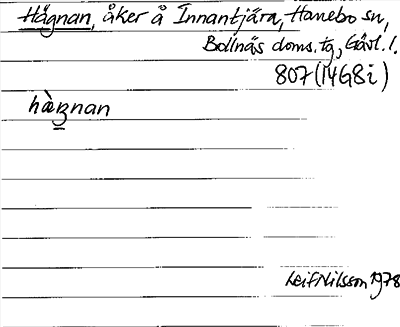 Hägnan, åker å Innantjära, Hanebo sn,
Bollnäs doms. tg, Gävl. l.
807 (14G8i)
hà̱ʒnan
Leif Nilsson 1978